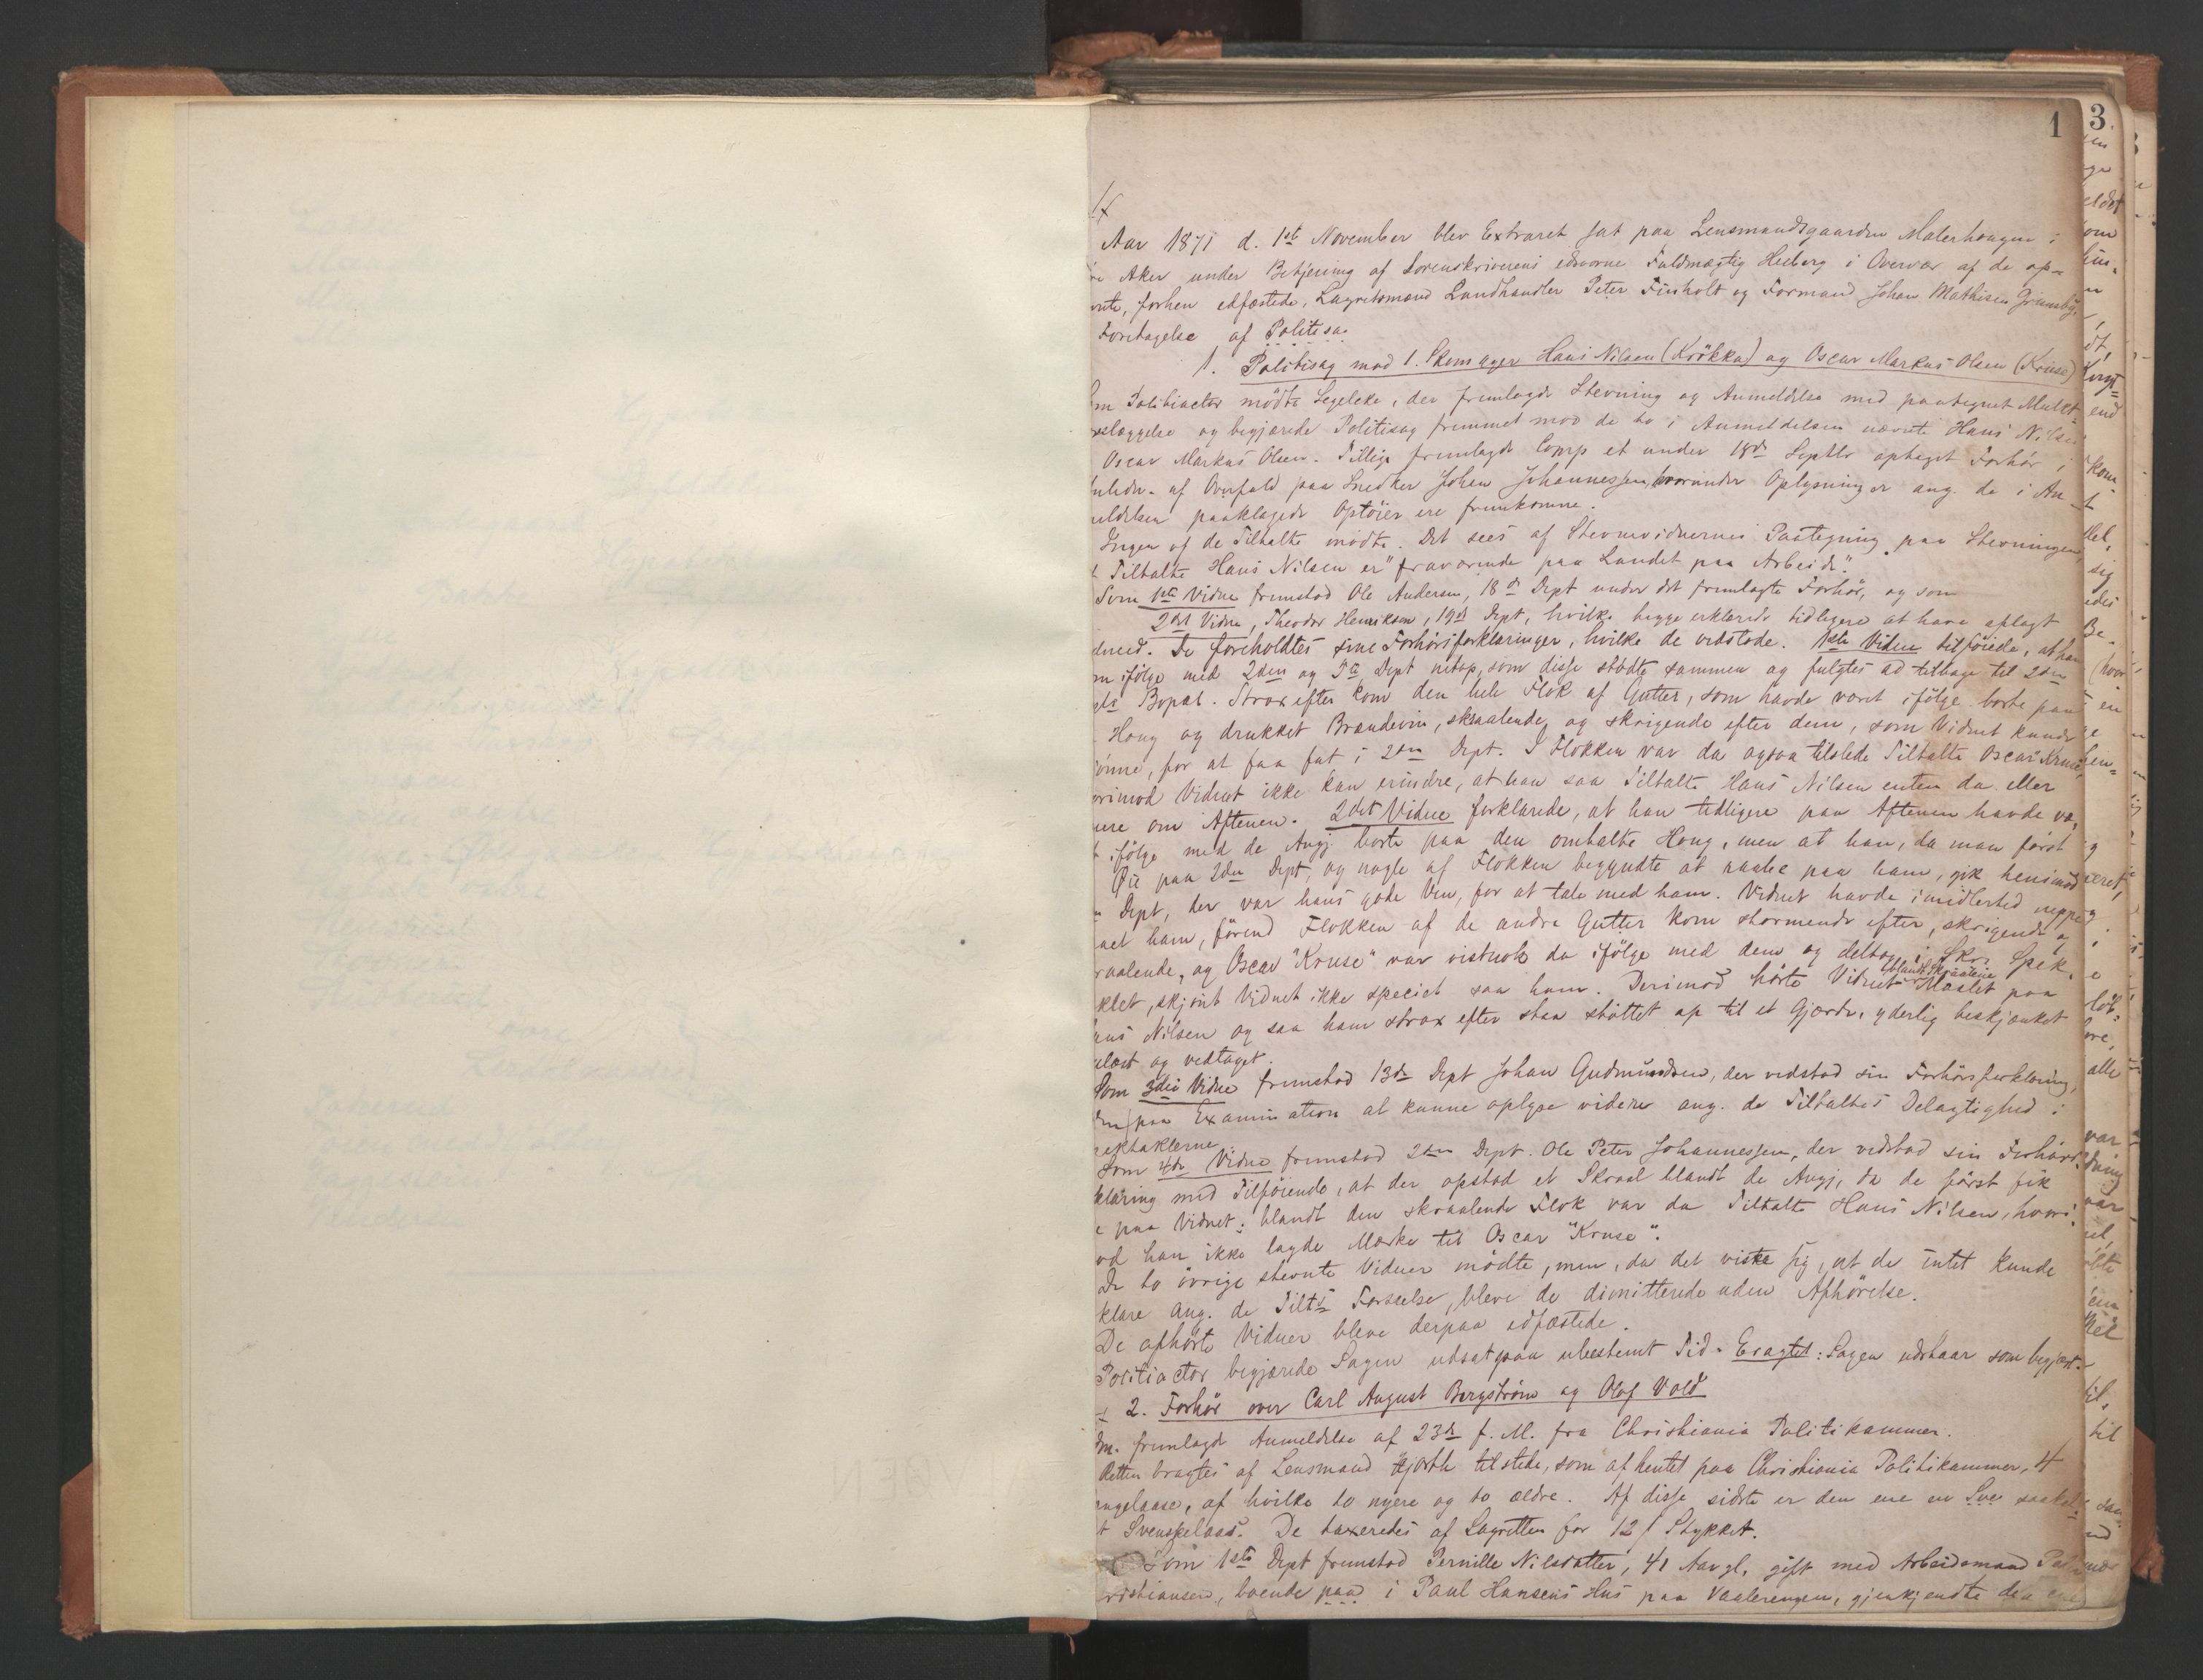 1
3
Aar 1871 d. 1ste November blev Extraret sat paa Lensmandsgaarden Malerhaugen i
Aker under Betjening af Sorenskriverens edsvorne Fuldmægtig Heiberg i Overvær af de op-
forhen edfæstede, Lagrettesmænd Landhandler Peter Finholt og Formand Johan Mathisen Grimsby,
Foretagelse af Politisa.
1. Politisag mod 1. Skomager Hans Nilsen (Krökka) og Oscar Markus Olsen (Kruse)
Politiactor mödte Segelcke, der fremlagde Stevning og Anmeldelse med paategnet Mulkt
og begjærede Politisag fremmet mod de to i Anmeldelsen nævnte Hans Nilsen
Oscar Markus Olsen. Tillige fremlagde Comp et under 18de Septbr optaget Forhör i
af Overfald paa Snedker Johan Johannessen, hvorunder Oplysninger ang. de i An-
meldelsen paaklagede Optöier ere fremkomne.
Ingen af de Tiltalte mödte. Det sees af Stevnevidnernes Paategning paa Stevningen,
Tiltalte Hans Nilsen er "fraværende paa Landet paa Arbeide".
Som 1ste Vidne fremstod Ole Andersen, 18de Dept under det fremlagte Forhör, og som
2det Vidne, Theodor Henriksen, 19de Dept, hvilke begge erklærede tidligere at have aflagt
De foreholdtes sine Forhörsforklaringer, hvilke de vedstode. 1ste Vidne tilföiede, at han
ifölge med 2den og 3die Dept netop, som disse stödte sammen og fulgtes ad tilbage til 2den
Bopæl. Strax efter kom den hele Flok af Gutter, som havde været ifölge borte paa
Haug og drukket Brændevin, skraalende og skrigende efter dem, som Vidnet kunde
for at faa fat i 2den Dept. I Flokken var da ogsaa tilstede Tiltalte Oscar "Kruse,
Vidnet ikke kan erindre, at han saa Tiltalte Hans Nilsen enten da eller
om Aftenen. 2det Vidne forklarede, at han tidligere paa Aftenen havde væ-
ifölge med de Angj borte paa den omtalte Haug, men at han, da man först
Öie paa 2den Dept, og nogle af Flokken begyndte at raabe paa ham, gik henimod
Dept, der var hans gode Ven, for at tale med ham. Vidnet havde imidlertid neppe
ham, förend Flokken af de andre Gutter kom stormende efter, skrigende og
og Oscar "Kruse" var vistnok da ifölge med dem og deltog i Spek-
skjönt Vidnet ikke specielt saa ham. Derimod hörte Vidnet blandt Skraalene Maalet paa
Nilsen og saa ham strax efter staa stöttet op til et Gjærde, yderlig beskjænket
og vedtaget.
Som 3die Vidne fremstod 13de Dept Johan Gudmundsen, der vedstod sin Forhörsforklaring,
paa Examination at kunne oplyse videre ang. de Tiltaltes Delagtighed i
Som 4de Vidne fremstod 2den Dept. Ole Peter Johannessen, der vedstod sin Forhörs-
klaring med Tilföiende, at der opstod et Skraal blandt de Angj, da de först fik
paa Vidnet; blandt den skraalende Flok var da Tiltalte Hans Nilsen, hvori-
han ikke lagde Mærke til Oscar "Kruse".
De to övrige stevnte Vidner mödte, men, da det viste sig, at de intet kunde
klare ang. de Tilts Forseelse, bleve de dimitterede uden Afhörelse.
De afhörte Vidner bleve derpaa edfæstede.
Politiactor begjærede Sagen udsat paa ubestemt Tid. Eragtet: Sagen udstaar som begjært.
2. Forhör over Carl August Bergström og Olof Vold
fremlagde Anmeldelse af 23de f. M. fra Christiania Politikammer.
Retten bragtes af Lensmand Hjorth tilstede, som afhentet paa Christiania Politikammer, 4
af hvilke to nyere og to ældre. Af disse sidste er den ene en
Svenskelaas. De taxeredes af Lagretten for 12 ß Stykket.
Som 1ste Dept fremstod Pernille Nilsdatter, 41 Aar gl, gift med Arbeidsmand
boende paa i Paul Hansens Hus paa Vaalerengen, gjenkjendte den ene